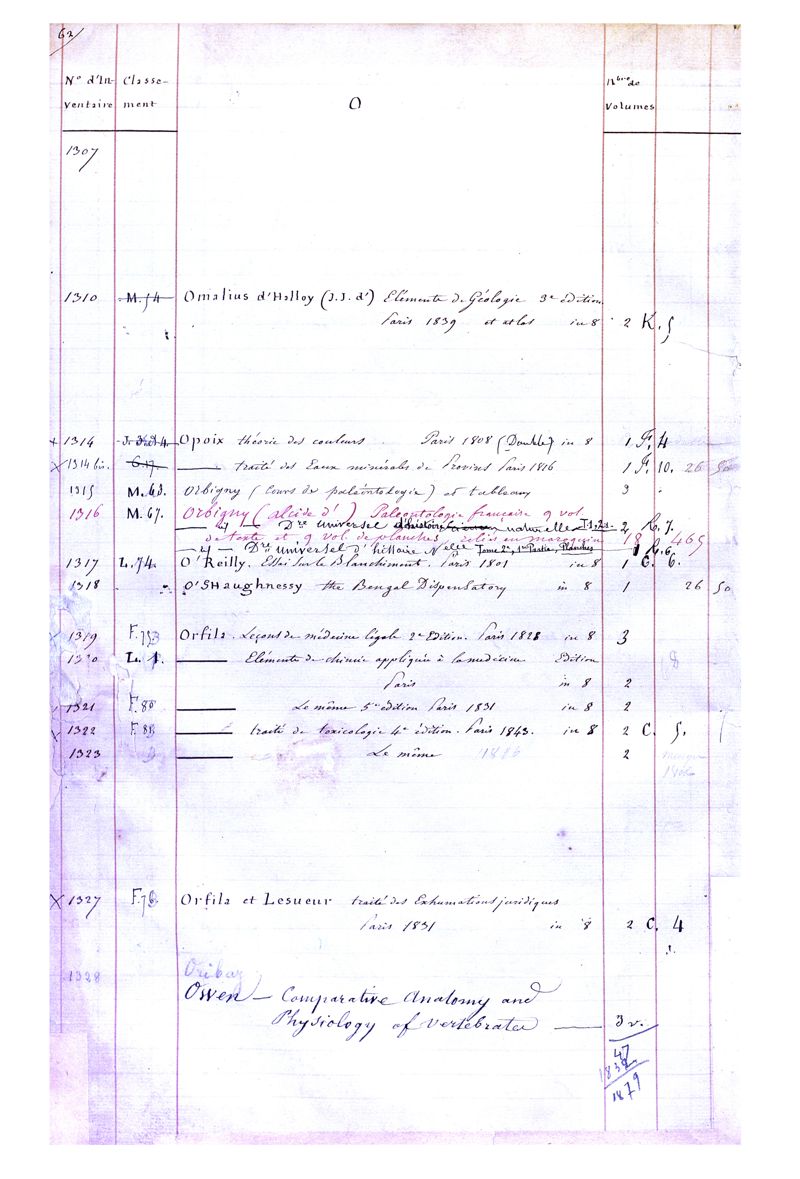 62
N° d'In- Classe- Nbre de
ventaire ment O Volumes
1307
1310 M.54 Omalius d'Halloy (J.J. d') Eléments de Géologie 3e édition
Paris 1839 et atlas in 8 2 K. 5
+ 1314 Opoix théorie des couleurs Paris 1808 (Double) in 8 1 F. 4
x 1314 bis. G.17. —— traité des Eaux minérales de Provins Paris 1816 1 F. 10. 26 50
1315 M.68. Orbigny (Cours de paléontologie) et tableaux 3
1316 M.67. Orbigny (alcide d') Paléontologie française 9 vol
— y — Dre universel d'histoire naturelle T1,2,3. 2 R. 7.
de texte et 9 vol. de planches, reliés en maroquin 18 465
— y — Dre universel d'histoire Nelle Tome 2, 1re Partie, Planches 1 R.6.
1317 L.74. O'Reilly. Essai sur le Blanchiment. Paris 1801 in 8 1 C. 6.
1318 . O'SHaughnessy the Bengal Dispensatory in 8 1 26 50
1319 F.753 Orfila. Leçons de médecine légale 2e Edition. Paris 1828 in 8 3
1320 L. 1. —— Eléments de chimie appliquée à la médecine Edition 8
Paris in 8 2
1321 F.80 —— Le même 5e édition Paris 1831 in 8 2
x 1322 F.88 —— traité de toxicologie 4e édition. Paris 1843. in 8 2 C. 5.
1323 —— Le même 1876 2 manque
1906
x 1327 F.76. Orfila et Lesueur traité des Exhumations juridiques
Paris 1831 in 8 2 C. 4
1328 Oribaz
Owen — Comparative Anatomy and
Physiology of vertebrates —— 3 v.
47
1832
1879